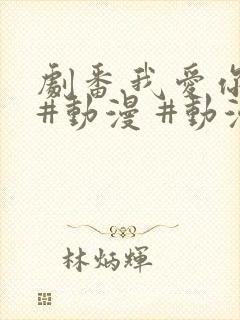 劇番我愛你
#動漫 #動漫
林炳輝